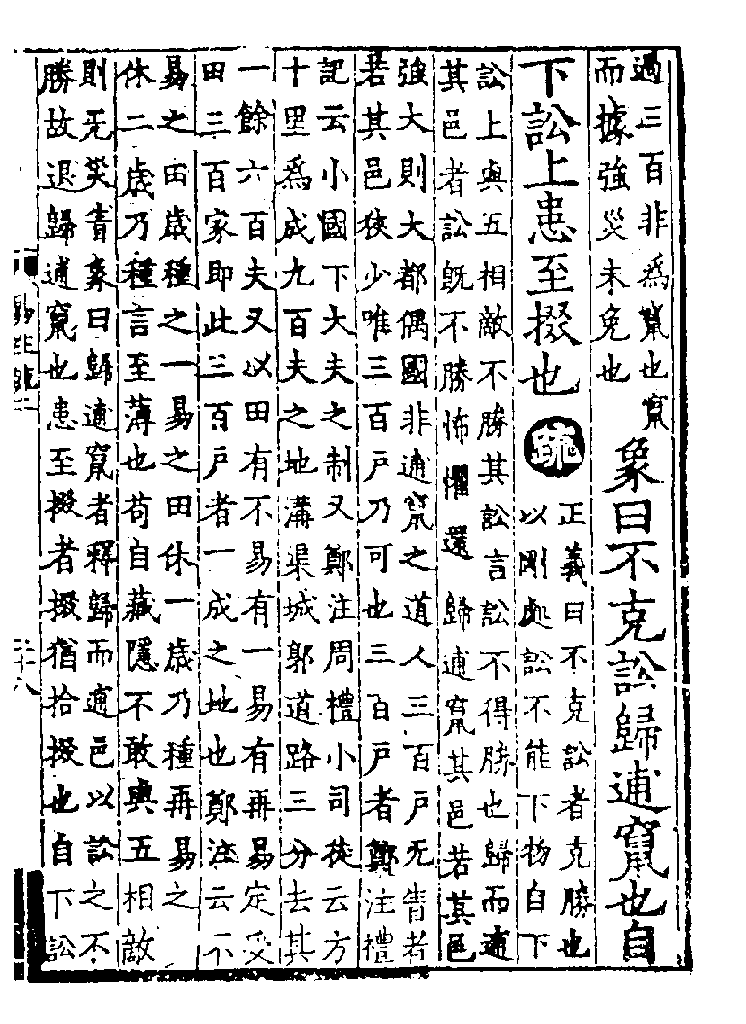 過三百非為竄也竄
而據強災未免也
象曰不克訟歸逋竄也自
下訟上患至掇也
疏
正義曰不克訟者克勝也
以剛處訟不能下物自下
訟上與五相敵不勝其訟言訟不得勝也歸而逋
其邑者訟既不勝怖懼還歸逋竄其邑若其邑
強大則大都偶國非逋竄之道人三百戶无眚者
若其邑狹少唯三百戶乃可也三百戶者鄭注禮
記云小國下大夫之制又鄭注周禮小司徒云方
十里為成九百夫之地溝渠城郭道路三分去其
一餘六百夫又以田有不易有一易有再易定受
田三百家即此三百戶者一成之地也鄭注云不
易之田歲種之一易之田休一歲乃種再易之
休二歲乃種言至薄也苟自藏隱不敢與五相敵
則无災眚象曰歸逋竄者釋歸而逋邑以訟之不
勝故退歸逋竄也患至掇者掇猶拾掇也自下訟